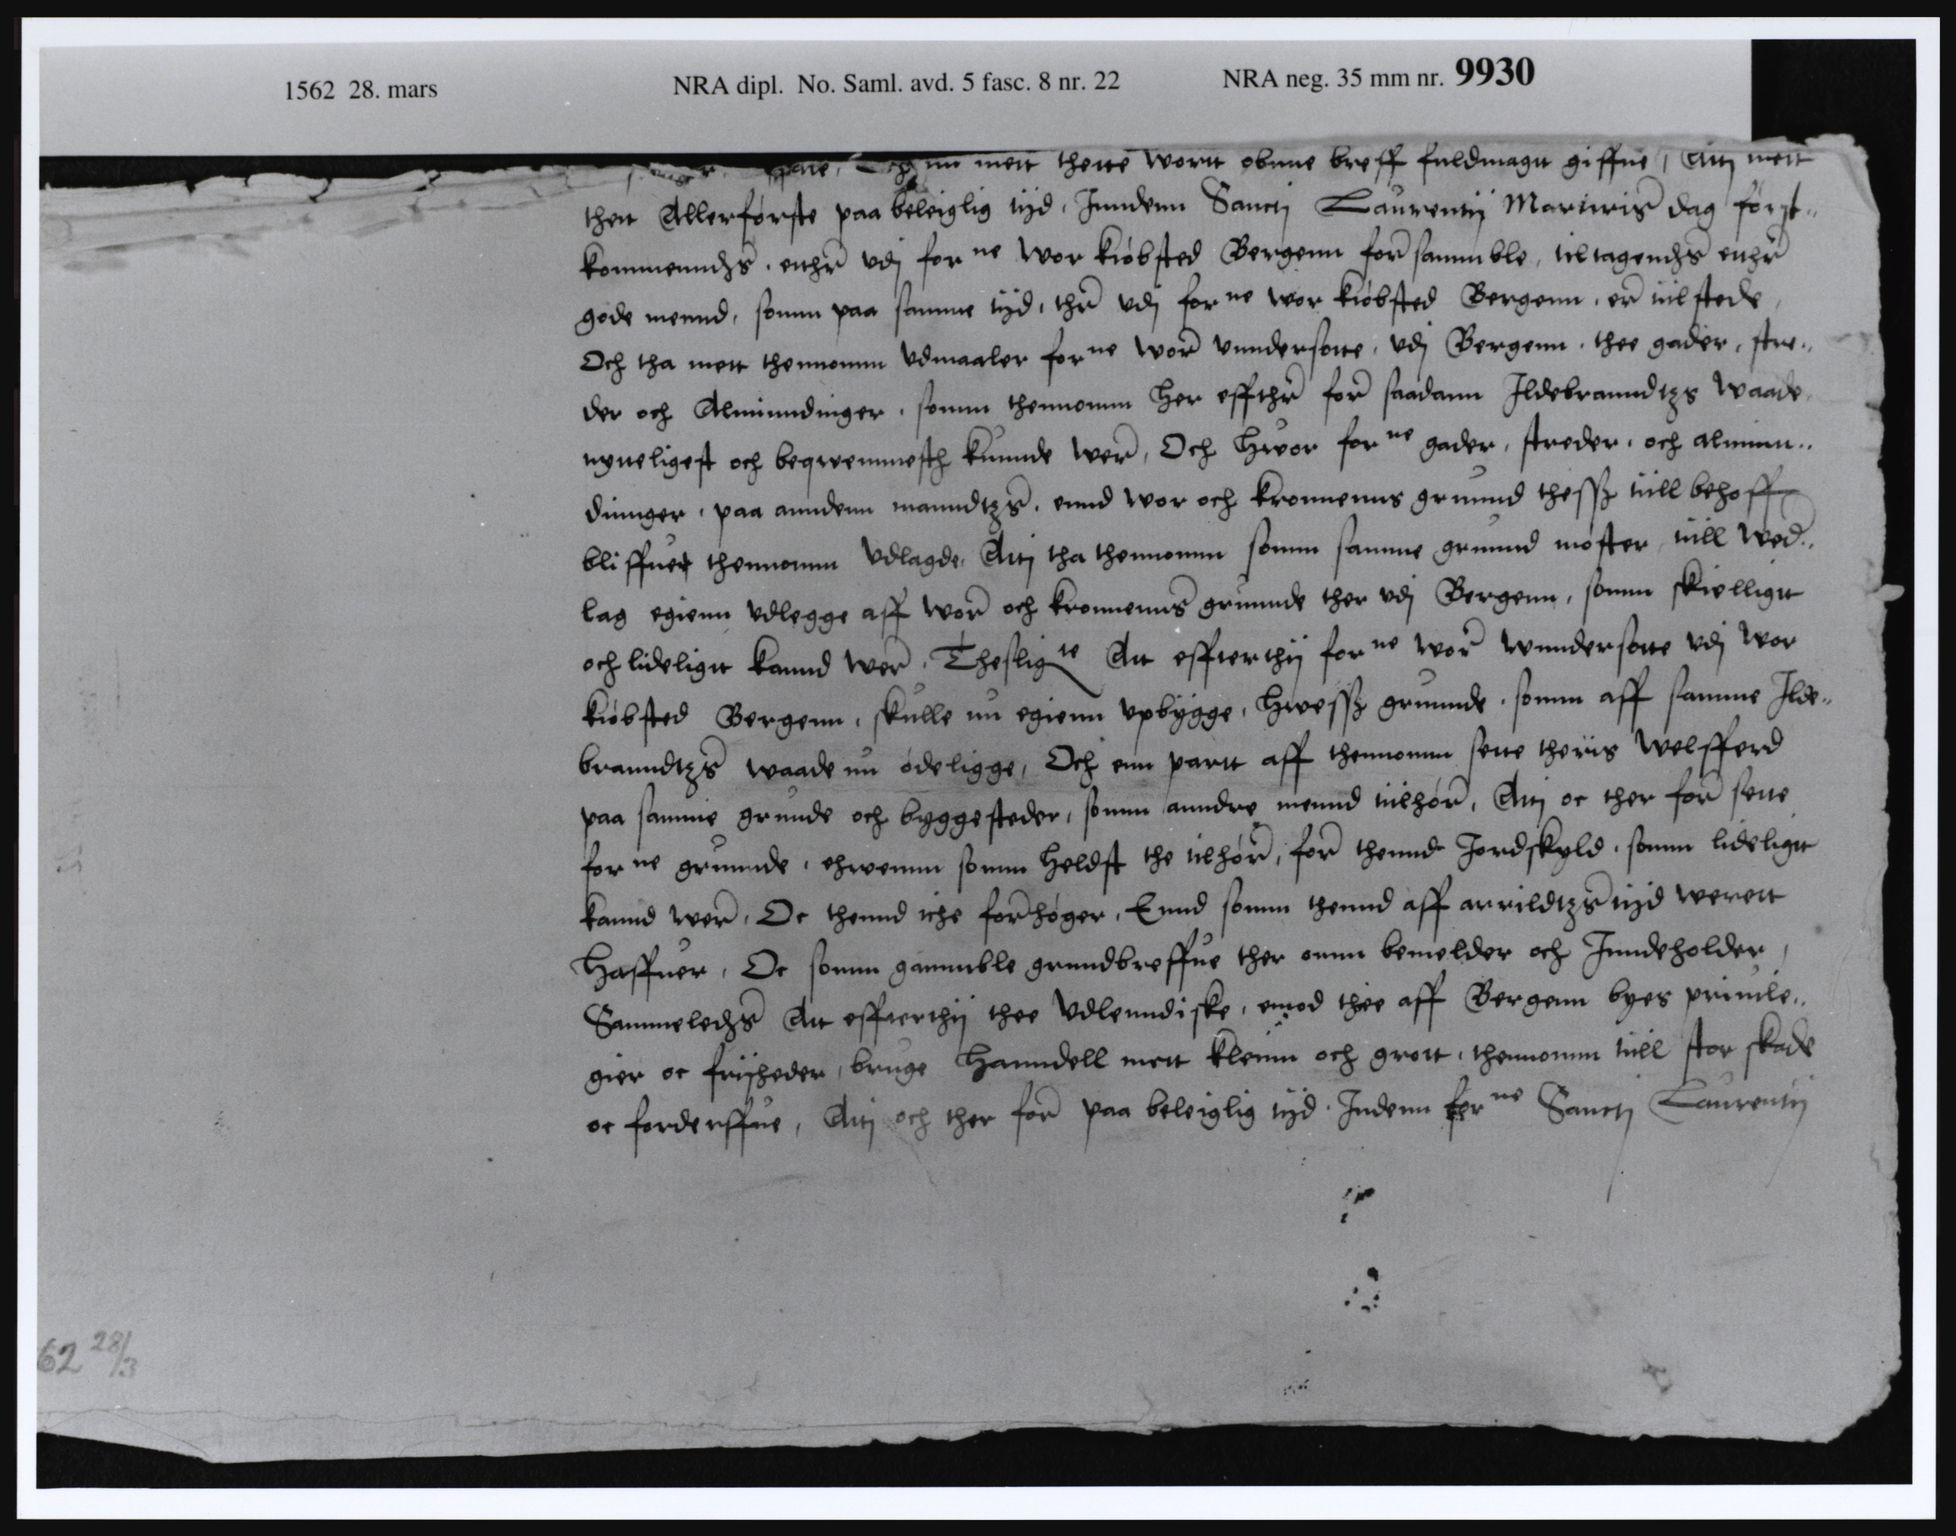 1562 28. mars NRA dipl. No. Saml. avd. 5 fasc. 8 nr. 22 NRA neg. 35 mm nr. 9930
Och nu mett thette wortt obnne breff fuldmagtt giffue, Atti mett
thett Allerførste paa beleiglig tijd, Inndenn Sancti Laurentij Martiris dag først..
kommenndzs, ether vdj forne wor kiøbsted Bergenn for sammble, till tagendzs ether
gode mennd, somm paa samme tijd, ther vdj forne wor kiøbsted Bergenn, er tiilstede,
Och tha mett thennomm vdmaaler forne wor vnndersotte, vdj Bergenn, thee gader, stre..
der och Alminndinger, somm thennomm her effther for saadann Ildebranndtzs waade
nytteligest och beqwemmesth kunnde wer, Och hwor forne gader, streder, och alminn..
dinnger, paa anndenn manndtzs, ennd wor och kronnenns grunnd thessz tiill behoff
bliffuer thennomm vdlagde, Atti tha thennomm somm samme grunnd møster, tiill wed..
lag egienn vdlegge aff wor och kronnenns grunnde ther vdj Bergenn, somm skielligtt
och lideligtt kannd wer, Thesligte Att effterthij forne wor wnndersotte vdj wor
kiøbsted Bergenn, skulle nu egienn vpbygge, hwessz grunnde, somm aff samme Ilde..
branndtzs waade nu ødeligge, Och enn partt aff thennomm sette theris welfferd
paa samme grunde och byggesteder, somm anndre mennd tiilhør, Atti oc ther for sette
forne grunnde, ehwemm somm heldst the tilhør, for thennd Jordskyld, somm lideligtt
kannd wer, Oc thennd iche forhøger, Ennd somm thennd aff arrildtzs tijd werett
haffuer, Oc somm gammble grundbreffue ther omm bemelder och Inndeholder,
Sammeledzs Att effterthij thee vdlenndiske, emod thee aff Bergenn byes priuile..
gier oc frijheder, bruge hanndell mett kleinn och grott, thennomm tiill stor skade
oc forderffue, Atti och ther for paa beleiglig tijd, Indenn forne Sancti Laurentij
62 28/3